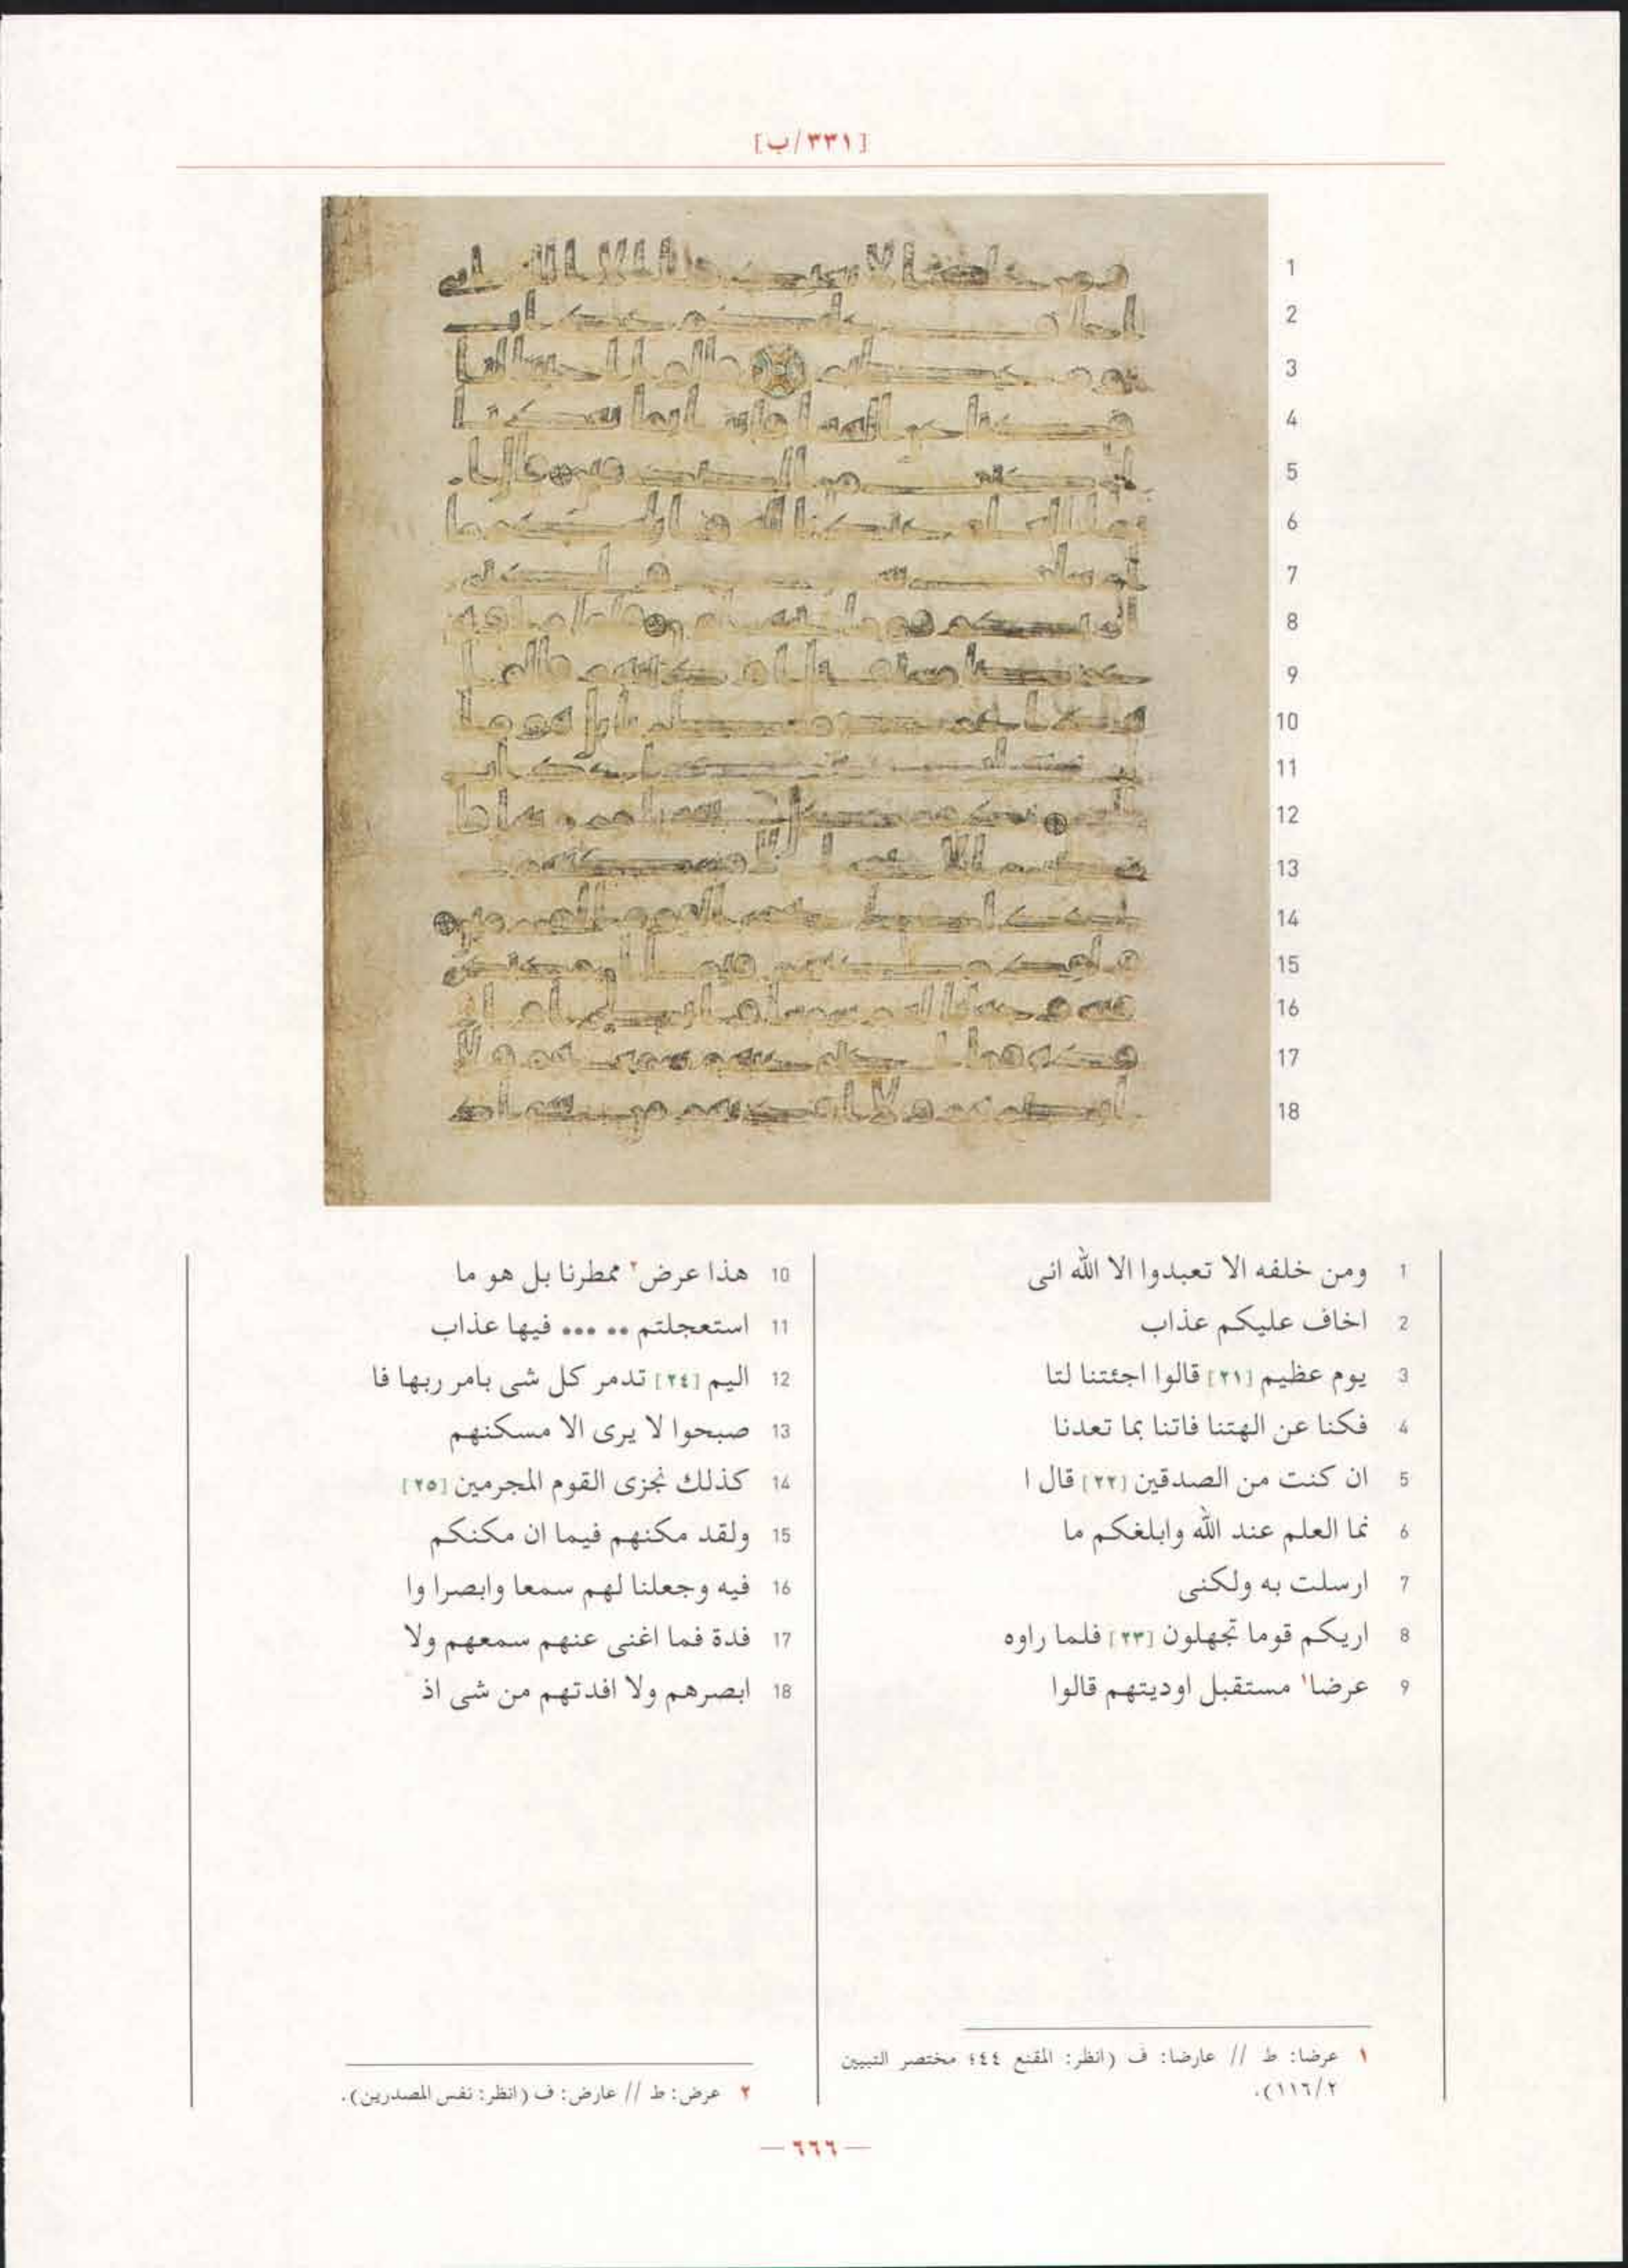 [٣٣١/ب]
1 ومن خلفه الا تعبدوا الا الله انى
2 اخاف عليكم عذاب
3 يوم عظيم [٢١] قالوا اجئتنا لتا
4 فكنا عن الهتنا فاتنا بما تعدنا
5 ان كنت من الصدقين [٢٢] قال ا
6 نما العلم عند الله وابلغكم ما
7 ارسلت به ولكنى
8 اريكم قوما تجهلون [٢٣] فلما راوه
9 عرضا١ مستقبل اوديتهم قالوا
10 هذا عرض٢ ممطرنا بل هو ما
11 استعجلتم •• ••• فيها عذاب
12 اليم [٢٤] تدمر كل شى بامر ربها فا
13 صبحوا لا يرى الا مسكنهم
14 كذلك نجزى القوم المجرمين [٢٥]
15 ولقد مكنهم فيما ان مكنكم
16 فيه وجعلنا لهم سمعا وابصرا وا
17 فدة فما اغنى عنهم سمعهم ولا
18 ابصرهم ولا افدتهم من شى اذ
١ عرضا: ط // عارضا: ف (انظر: المقنع ٤٤٤؛ مختصر التبيين
١١٦/٢).
٢ عرض: ط // عارض: ف (انظر: نفس المصدرين).
— ٦٦٦ —